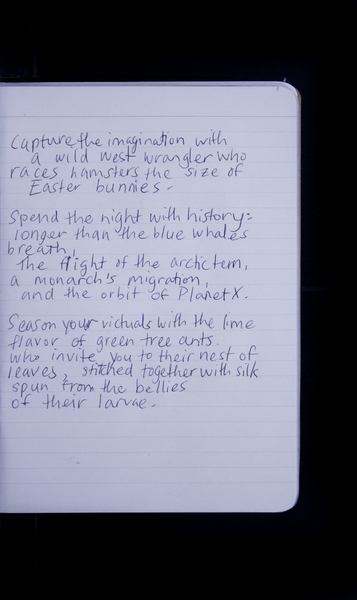 Capture the imagination with
a wild west wrangler who
races hamsters the size of
Easter bunnies.
Spend the night with history:
longer than the blue whales
breath,
the flight of the arctic tern,
a monarch's migration,
and the orbit of Planet X.
Season your victuals with the lime
flavor of green tree ants.
who invite you to their nest of
leaves, stitched together with silk
spun from the bellies
of their larvae.